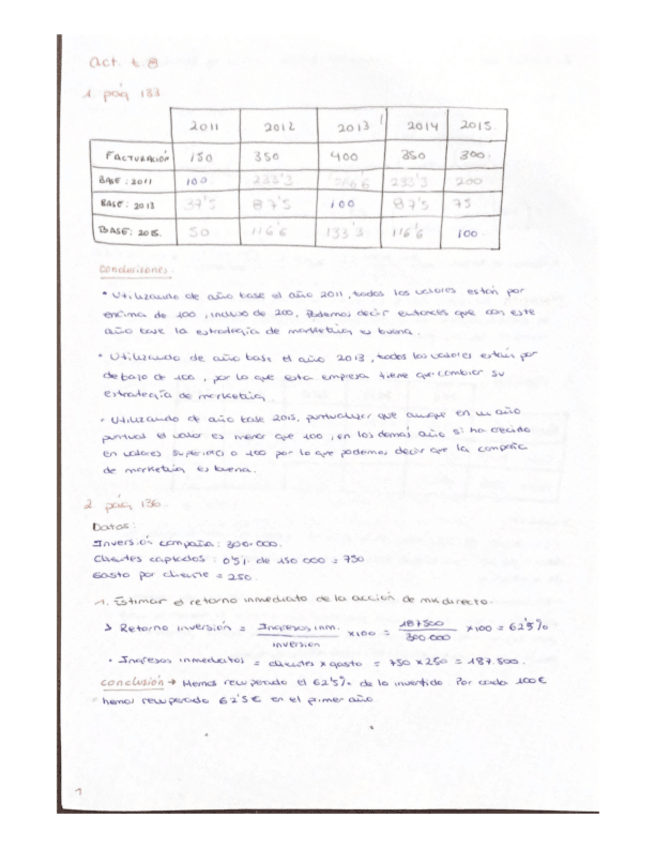 act. t.8
1. pág 133
2011 2012 2013 2014 2015
FACTURACIÓN 150 350 400 350 300
BASE: 2011 100 233'3 233'3 200
BASE: 2013 37'5 87'5 100 87'5 75
BASE: 2015. 50 116'6 133'3 116'6 100
Conclusiones.
• Utilizando de año base el año 2011, todos los valores están por
encima de 100, incluso de 200, Podemos decir entonces que con este
año base la estrategia de marketing es buena.
• Utilizando de año base el año 2013, todos los valores están por
debajo de 100, por lo que esta empresa tiene que cambiar su
estrategia de marketing
• Utilizando de año base 2015, que aunque en un año
puntual el valor es menor que 100, en los demás año si ha crecido
en valores o 100 por lo que podemos decir que la compañia
de marketing es buena.
2. pág 136.
Datos:
Inversión compañia: 300.000.
Clientes captados: 0'5% de 150 000 = 750
Gasto por cliente = 250.
1. Estimar el retorno inmediato de la acción de mk directo.
> Retorno inversión = Ingresos inm. / inversión x100 = 187500 / 300 000 x100 = 62'5%
• Ingresos inmediatos = clientes x gasto = 750 x 250 = 187.500.
conclusión → Hemos recuperado el 62'5% de lo invertido. Por cada 100€
hemos recuperado 62'5€ en el primer año
1